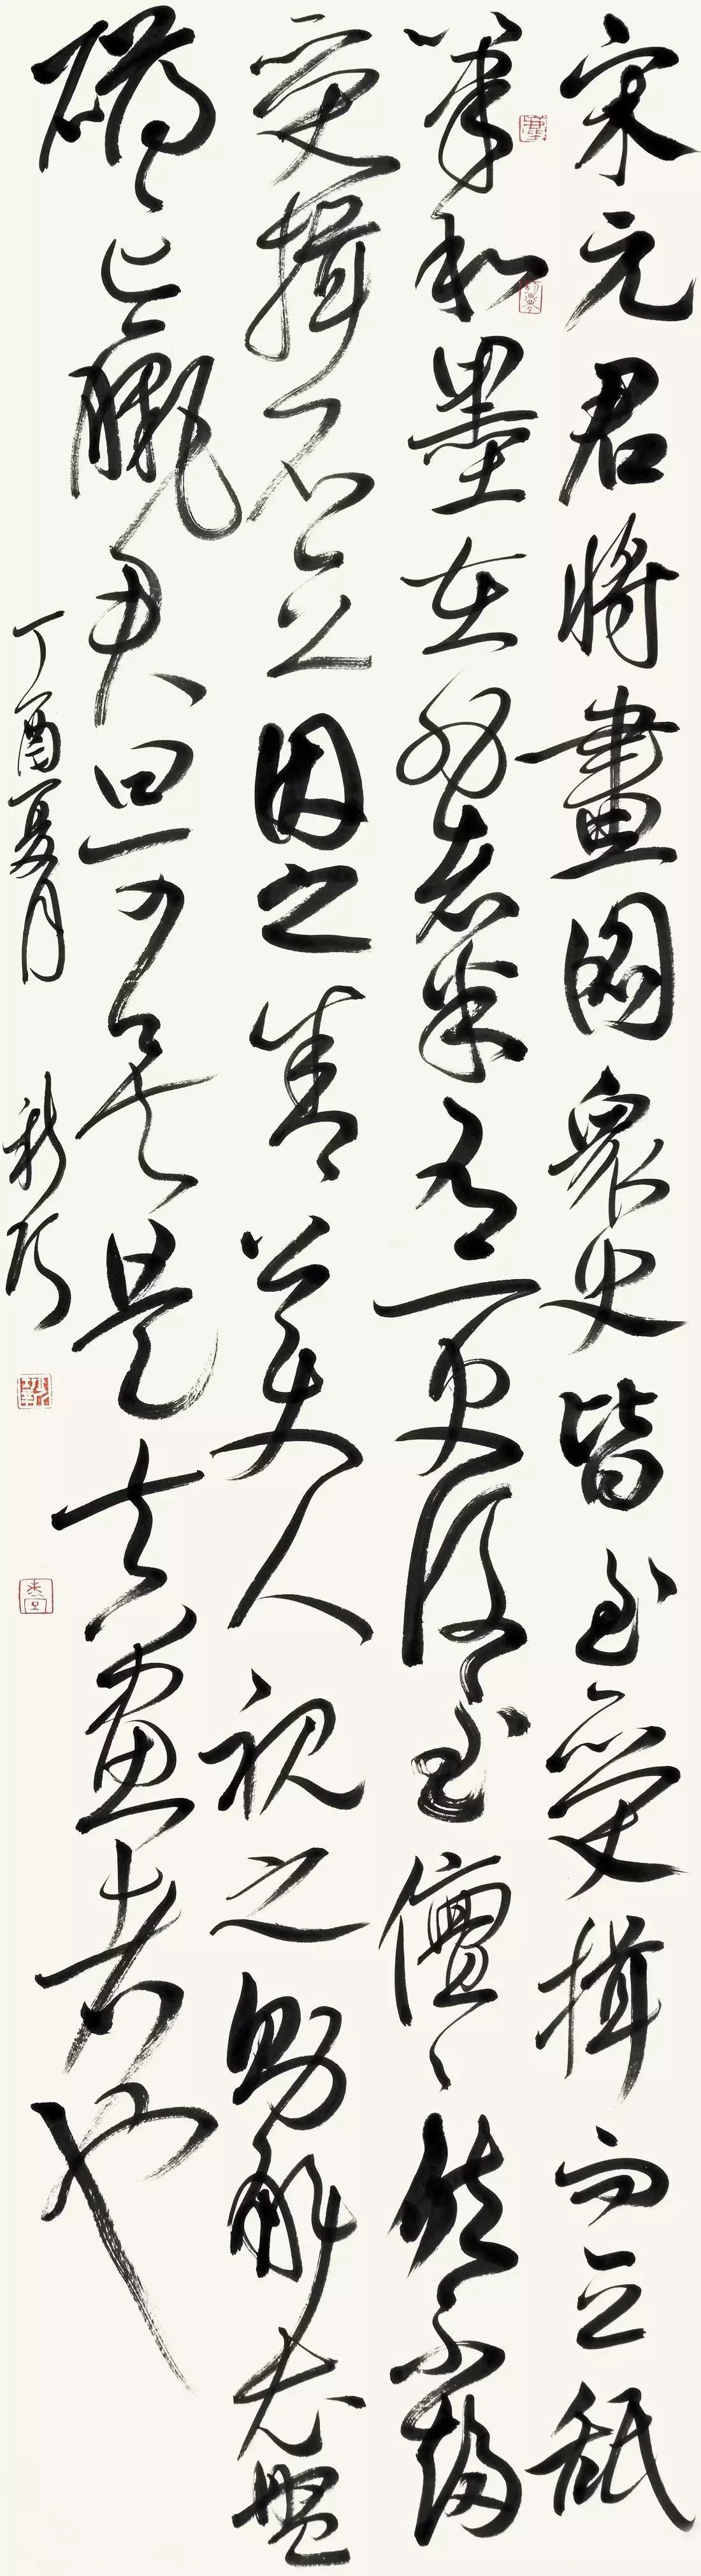 宋元君將畫圖眾史皆至受揖而立舐
筆和墨在外者半有一史後至儃〻然不趨
受揖不立因之舍公使人視之則解衣盤
礴臝君曰可矣是真畫者也
丁酉夏月